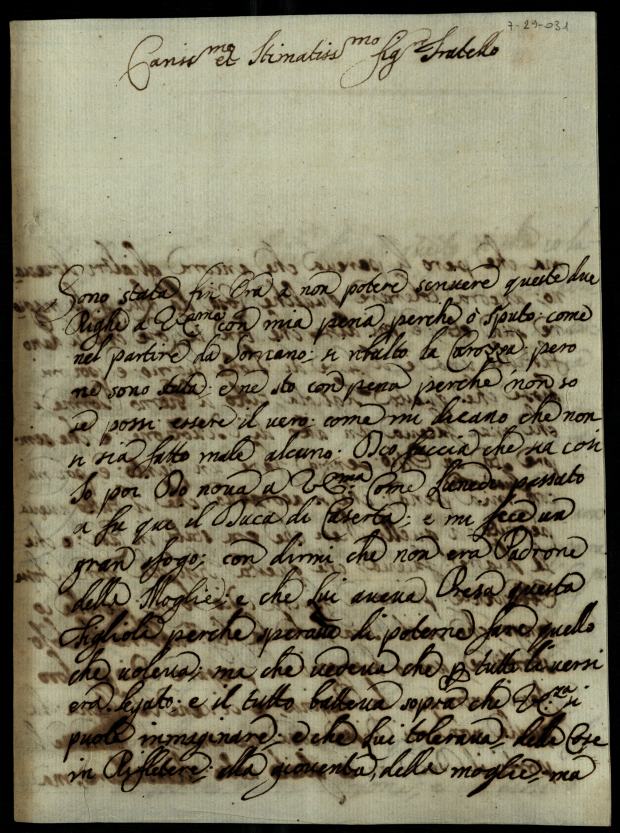 7-29-031
Cariss.mo et Stimatiss.mo Sig.r Fratello
Sono stata fin Ora a non potere scrivere queste due
Righe a con mia pena, perche ò sputo: come
nel partire da Soriano: si ribalto la Carozza: pero
ne sono stata: e ne sto con pena perche non so
se possi essere il vero: come mi dicano che non
si sia fatto male alcuno. Dio faccia che sia cosi
Io poi Do nova a Come Lunedi passato
a fu que il Duca di Caserta: e mi fece un
gran sfogo; con dirmi che non era Padrone
della Moglie; e che lui aveva Presa questa
figliola perche sperava di poterne fare quello
che voleva; ma che vedeva che p tutto li versi
era legato e il tutto batteva sopra che si
puole inmaginare; e che lui tolerava, delle Cose
in Rifletere, alla gioventa, della moglie, ma